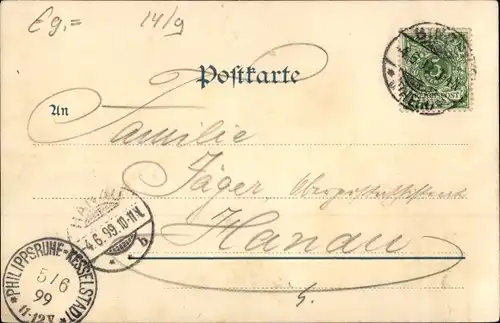 Eg.= 14/9
Postkarte
An
Familie
Jäger,
Hanau
HANAU
4.6.99.10-11V.
b
PHILIPPSRUHE-KESSELSTADT
5/6
99
11-12V